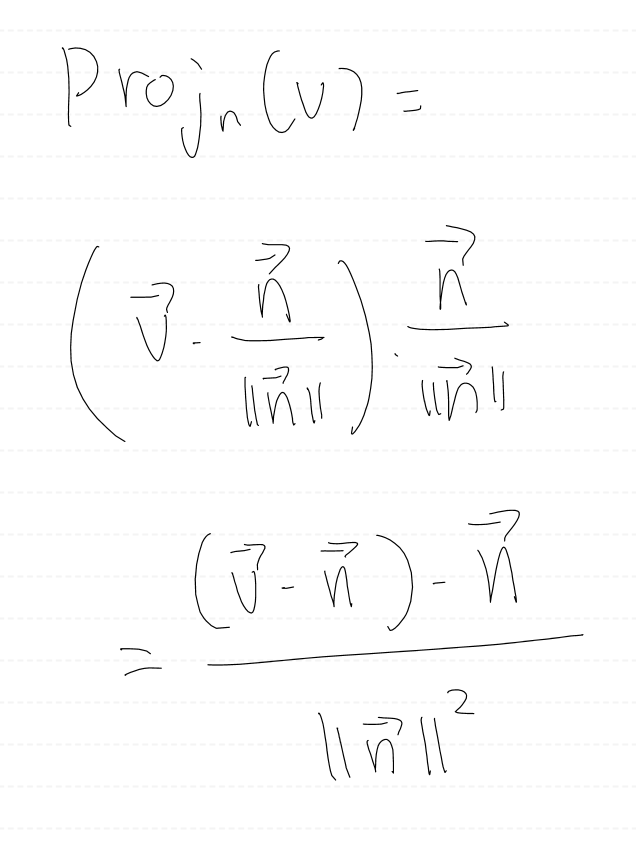 Proj_n(v) =
(\vec{v} \cdot \frac{\vec{n}}{\|\vec{n}\|}) \cdot \frac{\vec{n}}{\|\vec{n}\|}
= \frac{(\vec{v} - \vec{n}) - \vec{n}}{\|\vec{n}\|^2}